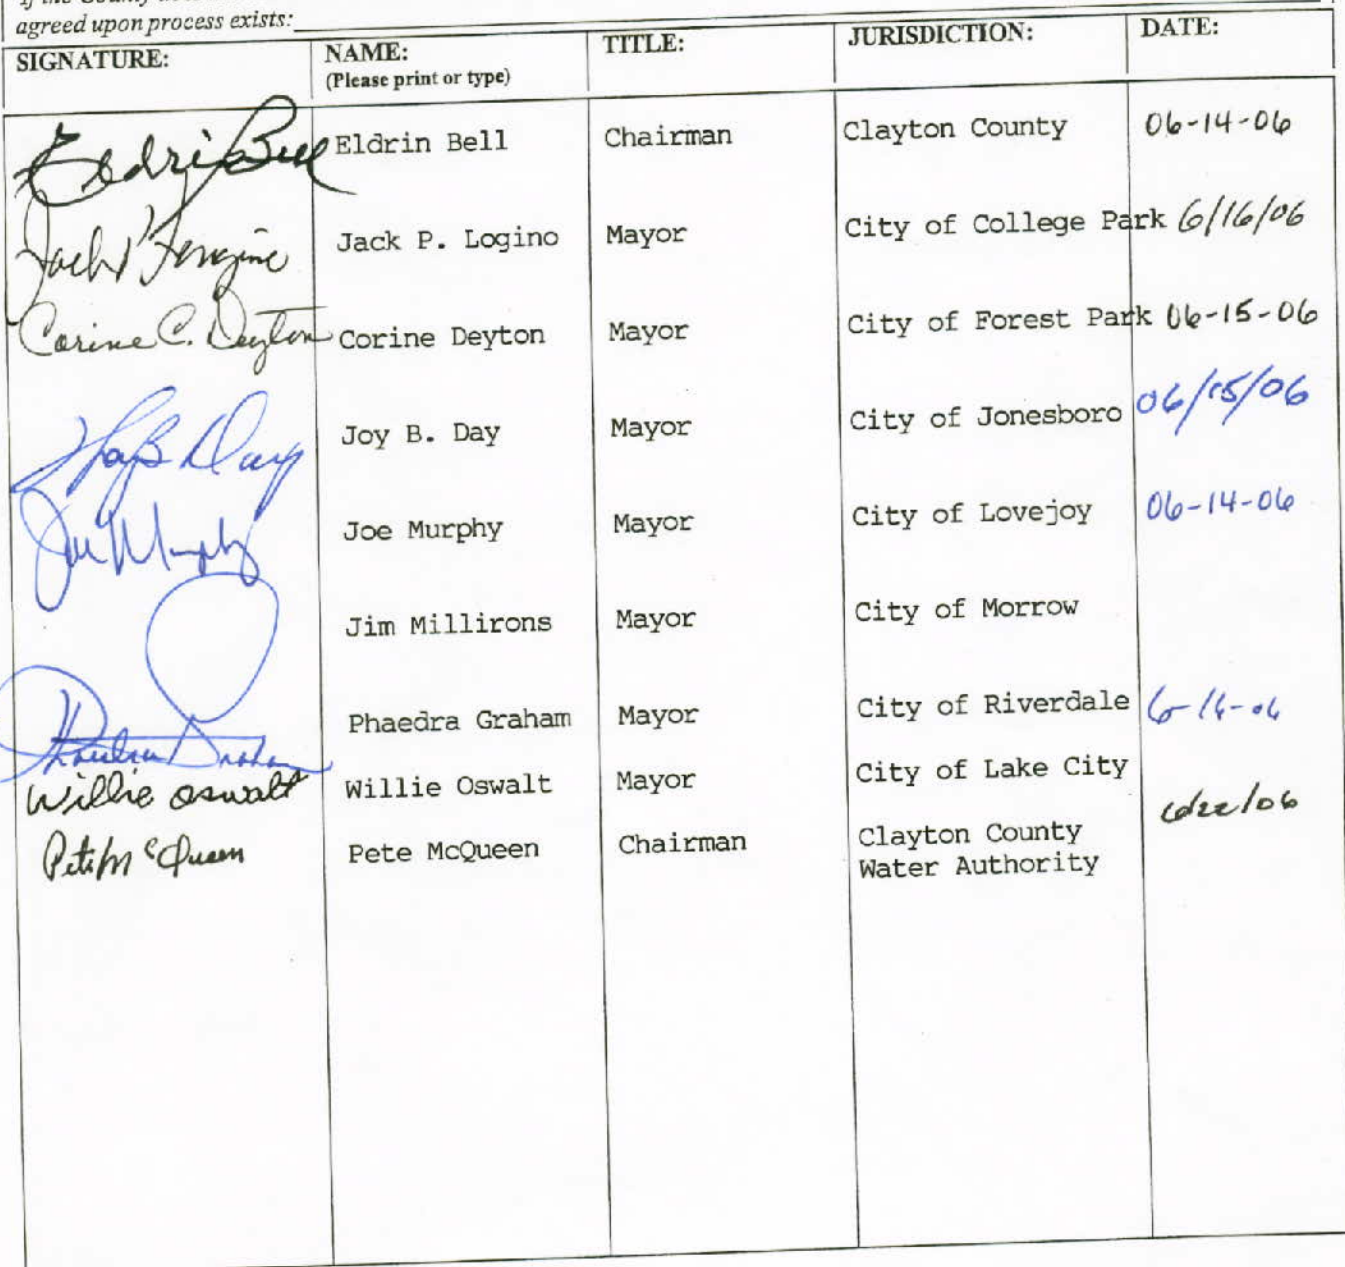 agreed upon process exists:
SIGNATURE: NAME: TITLE: JURISDICTION: DATE:
(Please print or type)
Eldrin Bell Eldrin Bell Chairman Clayton County 06-14-06
Jack P. Logino Mayor City of College Park 6/16/06
Corine C. Deyton Corine Deyton Mayor City of Forest Park 06-15-06
Joy B. Day Joy B. Day Mayor City of Jonesboro 06/15/06
Joe Murphy Joe Murphy Mayor City of Lovejoy 06-14-06
Jim Millirons Mayor City of Morrow
Phaedra Graham Phaedra Graham Mayor City of Riverdale 6-16-06
Willie Oswalt Willie Oswalt Mayor City of Lake City
6/22/06
Pete McQueen Pete McQueen Chairman Clayton County
Water Authority